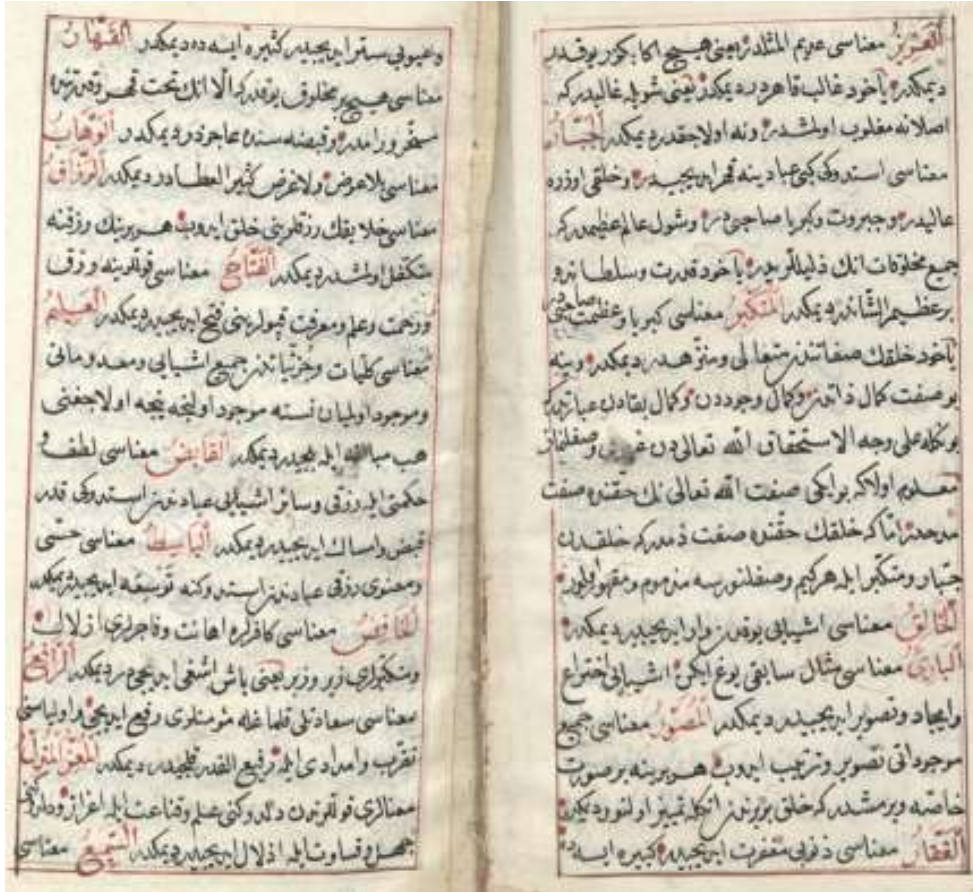 العزيز معناسی عديم المثلدر يعنی هيچ اكا بكزر يوقدر
ديمكدر ياخود غالب قاهردر ديمكدر يعنی شويله غالبدر كه
اصلا نه مغلوب اولمشدر ونه اولاجقدر ديمكدر الجبار
معناسی استدوكی كبی عبادينه قهر ايديجيدر وخلقی اوزره
عاليدر وجبروت وكبريا صاحبی در وشول عالی عظيمدر كه
جميع مخلوقات انك ذليللريدر ياخود قدرت وسلطانده
بر عظيم الشاندر ديمكدر المتكبر معناسی كبريا وعظمت صاحبی
ياخود خلقك صفاتندن متعالی ومنزهدر ديمكدر وينه
بو صفت كمال ذاتدن وكمال وجوددن وكمال بقادن عبارتدر
بونكله علی وجه الاستحقاق الله تعالی دن غيری وصفلنماز
معلوم اولا كه بو ايكی صفت الله تعالی نك حقنده صفت
مدحدر اما كه خلقك حقنده صفت ذمدر كه خلقدن
جبار ومتكبر ايله هر كيم وصفلنورسه مذموم ومقهور اولور
الخالق معناسی اشيايی يوقدن وار ايديجيدر ديمكدر
الباری معناسی مثال سابقی يوغ ايكن اشيايی اختراع
وايجاد وتصوير ايديجيدر ديمكدر المصور معناسی جميع
موجوداتی تصوير وترتيب ايدوب هر برينه بر صورت
خاصه ويرمشدر كه خلق بربرندن انكله تمييز اولنور ديمكدر
الغفار معناسی ذنوبی مغفرت ايديجيدر كبيره ايسه ده
وعيوبی ستر ايديجيدر كثيره ايسه ده ديمكدر القهار
معناسی هيچ بر مخلوق يوقدر الا انك تحت قهر وقدرتنده
مسخر ورامدر وقبضه سنده عاجزدر ديمكدر الوهاب
معناسی بلا عوض ولا غرض كثير العطادر ديمكدر الرزاق
معناسی خلايقك رزقلرينی خلق ايدوب هر برينك رزقنه
متكفل اولمشدر ديمكدر الفتاح معناسی قوللرينه رزق
ورحمت وعلم ومعرفت قپولرينی فتح ايديجيدر ديمكدر العليم
معناسی كليات وجزئياتدن جميع اشيايی ومعدوماتی
وموجود اوليان نسنه موجود اولنجه نيجه اولاجغنی
هب مبالغه ايله بيلجيدر ديمكدر القابض معناسی لطف و
حكمتی ايله رزقی وسائر اشيايی عبادندن استدوكی قدر
قبض وامساك ايديجيدر ديمكدر الباسط معناسی حسی
ومعنوی رزقی عبادندن استدوكنه توسعه ايديجيدر ديمكدر
الخافض معناسی كافرلره اهانت وفاجرلری اذلال
ومتكبرلری زير وزبر يعنی باش اشغی ايديجی در ديمكدر الرافع
معناسی سعادتلی قلماغله مؤمنلری رفيع ايديجی واوليا سنی
تقرب وامدادی ايله رفيع القدر قيلجيدر ديمكدر المعز المذل
معنالری قوللرندن دلدوكنی علم وقناعت ايله اعزاز ودلدوكنی
جهل وقساوت ايله اذلال ايديجيدر ديمكدر السميع معناسی